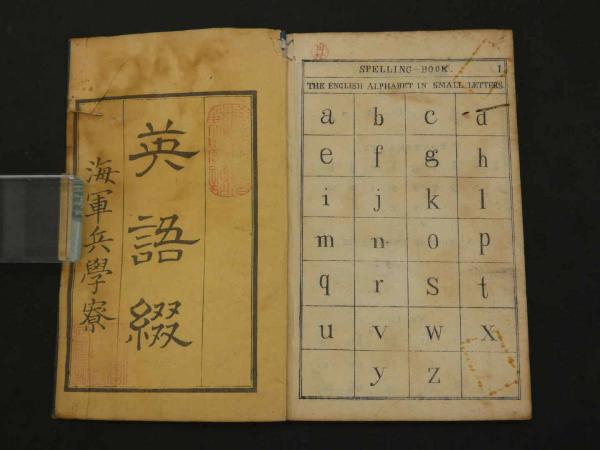 英語綴
海軍兵學寮
SPELLING-BOOK. 1
THE ENGLISH ALPHABET IN SMALL LETTERS.
a b c d
e f g h
i j k l
m n o p
q r s t
u v w x
y z